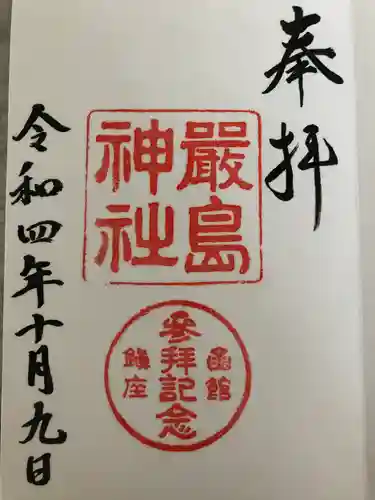 奉拝
嚴島
神社
函館
參拝記念
鎮座
令和四年十月九日